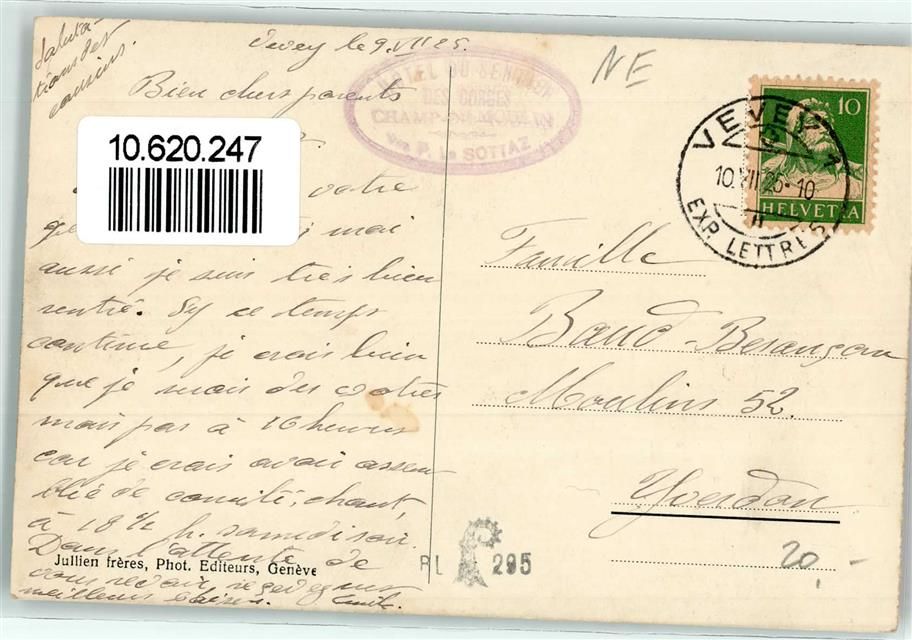 Saluta-
tions des
cousins.
Vevey le 9. VII 25.
Bien chers parents
NE
HOTEL DU SENTIER
DES GORGES
CHAMP-DU-MOULIN
P. La SOTTAZ
10
HELVETIA
VEVEY 1
10.VII.25-10
EXP. LETTRES
10.620.247
votre
moi
aussi je suis très bien
rentré. Sy ce temps
continue, je crois bien
que je suis des votres
mais pas à 16 heures
car je crois avoir assem
blée de comité, chant,
à 18 1/2 h. samedi soir.
Dans l'attente de
vous revoir, recevez nos
meilleurs baisers. Emile.
Famille
Baud-Besançon
Moulins 52.
Yverdon
20,-
Jullien frères, Phot. Editeurs, Genève
RL 295